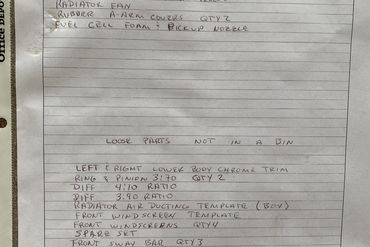 Office DEPO
RADIATOR FAN
RUBBER A-ARM COVERS QTY 2
FUEL CELL FOAM & PICKUP NOZZLE
LOOSE PARTS NOT IN A BIN
LEFT & RIGHT LOWER BODY CHROME TRIM
RING & PINION 3:70 QTY 2
DIFF 4:10 RATIO
DIFF 3:90 RATIO
RADIATOR AIR DUCTING TEMPLATE (BOX)
FRONT WINDSCREEN TEMPLATE
FRONT WINDSCREENS QTY 4
SPARE SET
FRONT SWAY BAR QTY 3